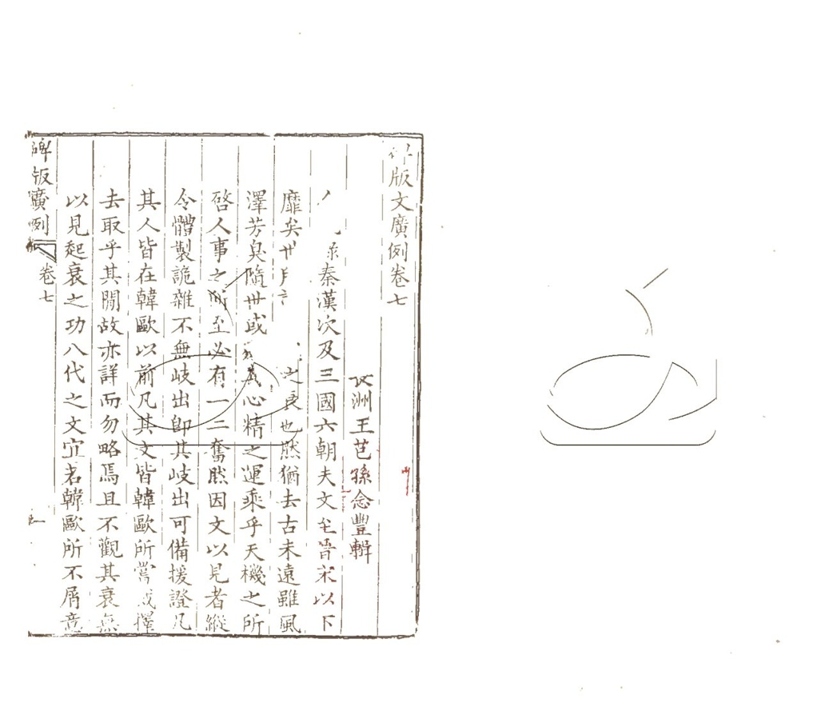 版文廣例卷七
長洲王芑孫念豐輯
秦漢次及三國六朝夫文至晉宋以下
靡矣世 之衰也然猶去古未遠雖風
澤芳臭隨世或 義心精之運乘乎天機之所
啓人事之所至必有一二奮然因文以見者縱
令體製詭雜不無歧出卽其歧出可備援證凡
其人皆在韓歐以前凡其文皆韓歐所嘗 擇
去取乎其閒故亦詳而勿略焉且不觀其衰無
以見起衰之功八代之文宜若韓歐所不屑意
碑版廣例
卷七